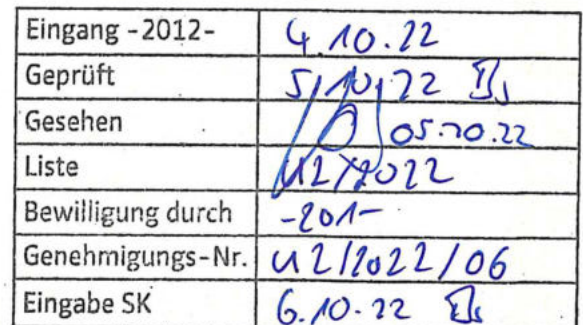 Eingang -2012- 4.10.22
Geprüft 5/10.22
Gesehen 05.10.22
Liste U2/2022
Bewilligung durch -201-
Genehmigungs-Nr. U2/2022/06
Eingabe SK 6.10.22